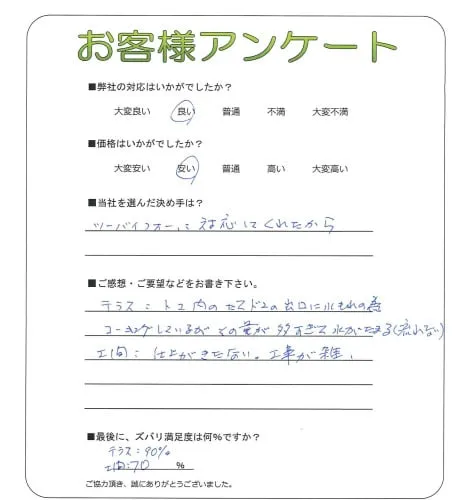 お客様アンケート
■弊社の対応はいかがでしたか？
大変良い 良い 普通 不満 大変不満
■価格はいかがでしたか？
大変安い 安い 普通 高い 大変高い
■当社を選んだ決め手は？
ツーバイフォーに対応してくれたから
■ご感想・ご要望などをお書き下さい。
テラス： 内の の出口に水もれの為
コーキングしているが その量が多すぎて水がたまる(流れない)
工間：仕上がきたない。工事が雑、
■最後に、ズバリ満足度は何％ですか？
テラス：90%
工間：70 ％
ご協力頂き、誠にありがとうございました。